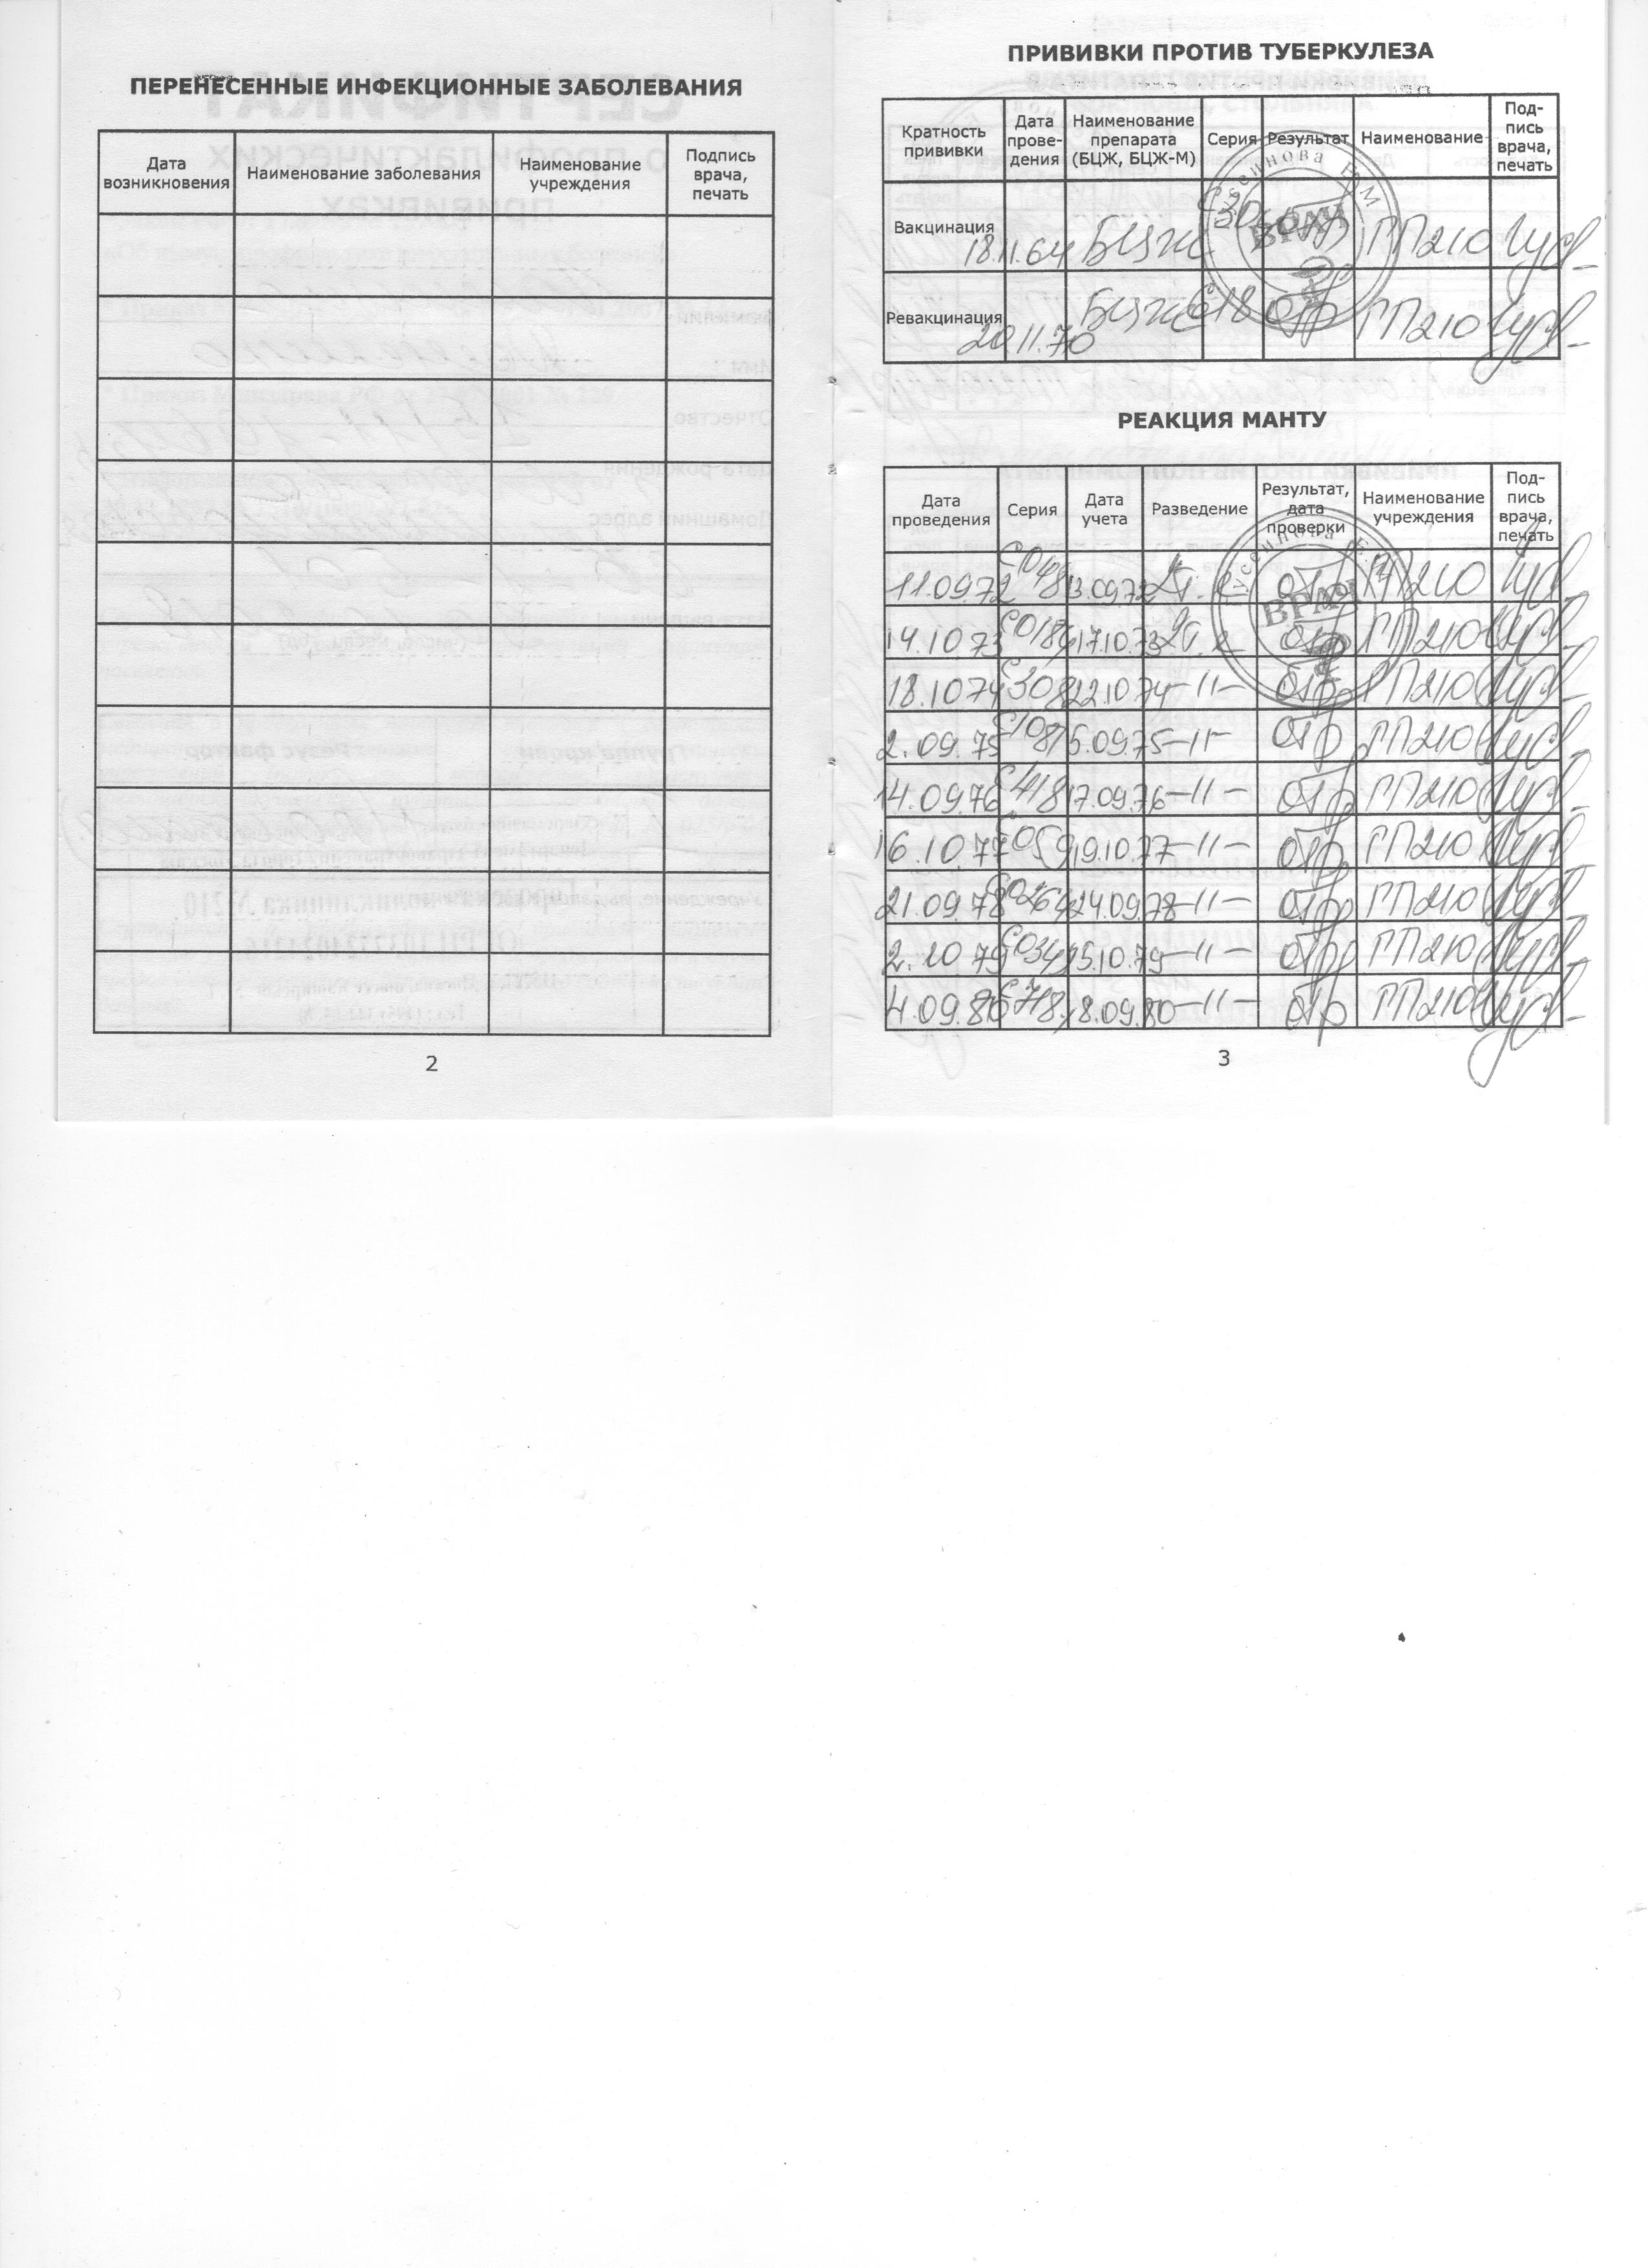 ПЕРЕНЕСЕННЫЕ ИНФЕКЦИОННЫЕ ЗАБОЛЕВАНИЯ
Дата возникновения Наименование заболевания Наименование учреждения Подпись врача, печать
2
ПРИВИВКИ ПРОТИВ ТУБЕРКУЛЕЗА
Кратность прививки Дата прове-дения Наименование препарата (БЦЖ, БЦЖ-М) Серия Результат Наименование Под-пись врача, печать
Вакцинация 18.11.64 БЦЖ ГП210
Ревакцинация 20.11.70 БЦЖ С18 отр ГП210
РЕАКЦИЯ МАНТУ
Дата проведения Серия Дата учета Разведение Результат, дата проверки Наименование учреждения Под-пись врача, печать
11.09.72 С048 13.09.72 отр ГП210
14.10.73 С0189 17.10.73 отр ГП210
18.10.74 С308 22.10.74 -11- отр ГП210
2.09.75 С108 5.09.75 -11- отр ГП210
14.09.76 С418 17.09.76 -11- отр ГП210
16.10.77 С059 19.10.77 -11- отр ГП210
21.09.78 С0264 24.09.78 -11- отр ГП210
2.10.79 С034 5.10.79 -11- отр ГП210
4.09.80 С718 8.09.80 -11- отр ГП210
ВРАЧ
ВРАЧ
3